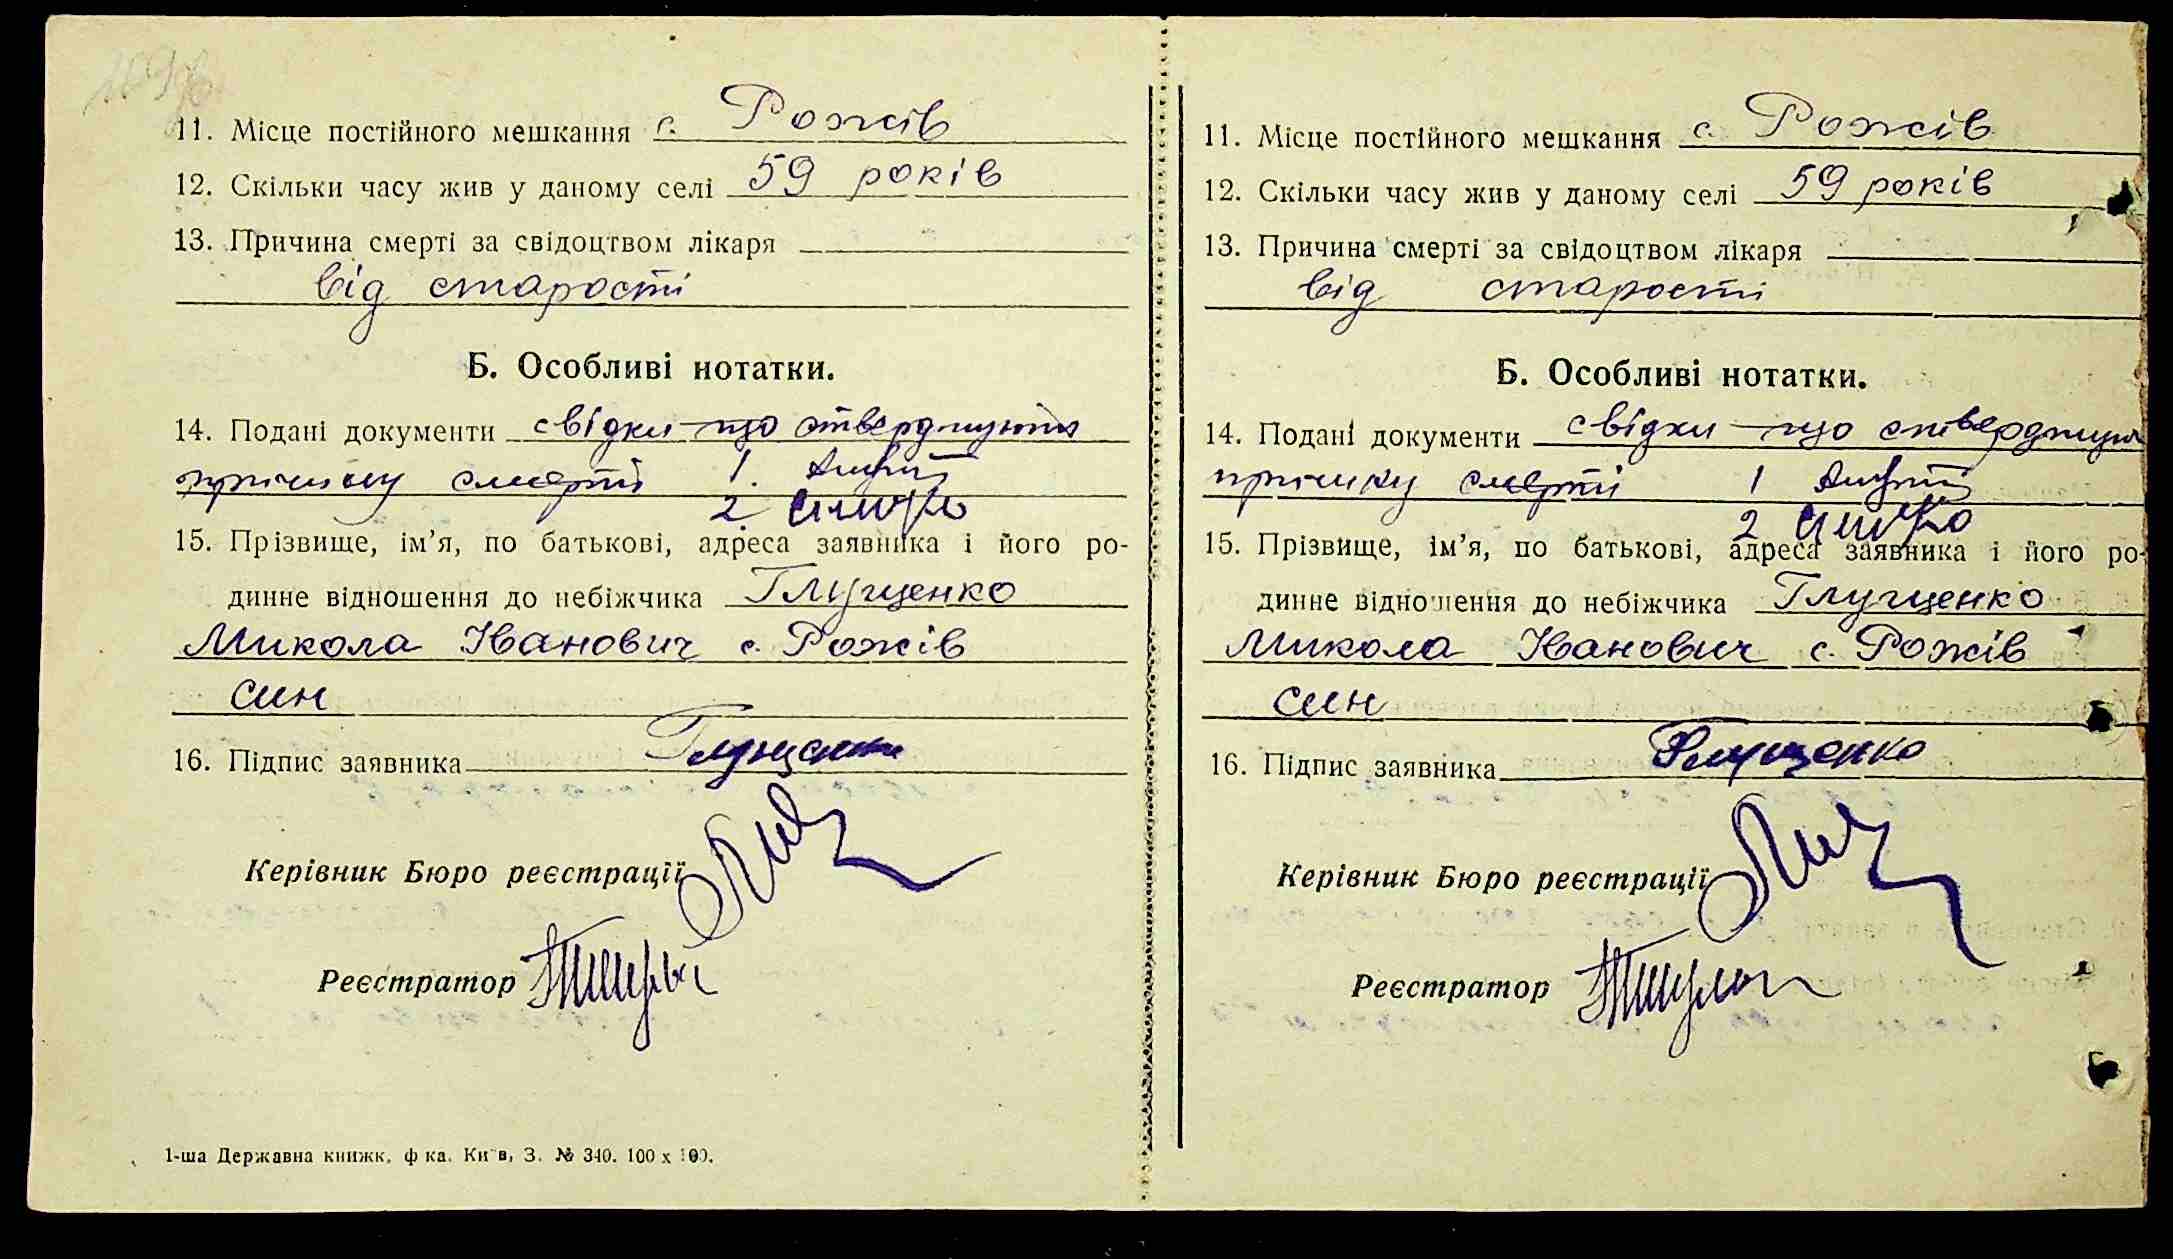 11. Місце постійного мешкання с. Рожів
12. Скільки часу жив у даному селі 59 років
13. Причина смерті за свідоцтвом лікаря
від старости
Б. Особливі нотатки.
14. Подані документи свідки що стверджують
причину смерті 1.
2.
15. Прізвище, ім'я, по батькові, адреса заявника і його ро-
динне відношення до небіжчика Глущенко
Микола Іванович с. Рожів
син
16. Підпис заявника Глущенко
Керівник Бюро реєстрації
Реєстратор
1-ша Державна книжк. ф-ка. Київ, З. № 340. 100 x 100.
11. Місце постійного мешкання с. Рожів
12. Скільки часу жив у даному селі 59 років
13. Причина смерті за свідоцтвом лікаря
від старости
Б. Особливі нотатки.
14. Подані документи свідки що стверджують
причину смерті 1
2
15. Прізвище, ім'я, по батькові, адреса заявника і його ро-
динне відношення до небіжчика Глущенко
Микола Іванович с. Рожів
син
16. Підпис заявника Глущенко
Керівник Бюро реєстрації
Реєстратор